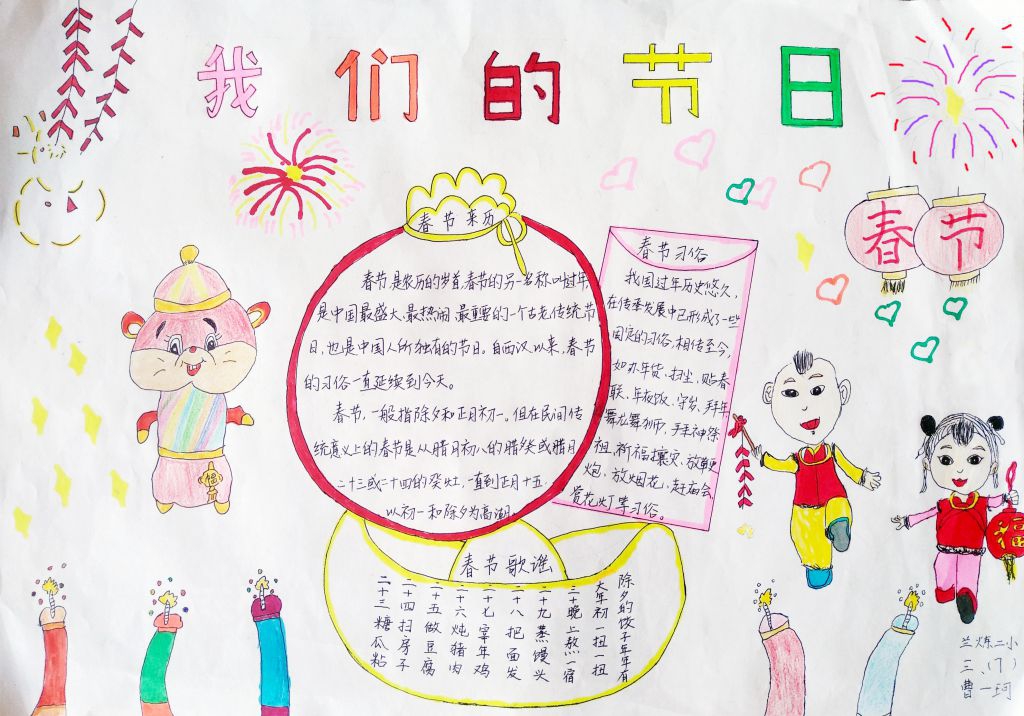 我们的节日
春节来历
春节是农历的岁首,春节的另一名称叫过年
是中国最盛大、最热闹、最重要的一个古老传统节
日,也是中国人所独有的节日。自西汉以来,春节
的习俗一直延续到今天。
春节,一般指除夕和正月初一。但在民间传
统意义上的春节是从腊月初八的腊祭或腊月
二十三或二十四的祭灶,一直到正月十五,
以初一和除夕为高潮。
春节习俗
我国过年历史悠久,
在传承发展中已形成了一些
固定的习俗,相传至今,
如办年货、扫尘、贴春
联、年夜饭、守岁、拜年、
舞龙舞狮、拜神祭
祖、祈福攘灾、放鞭
炮、放烟花、赶庙会、
赏花灯等习俗。
春节
福
福
春节歌谣
二十三糖瓜粘
二十四扫房子
二十五做豆腐
二十六炖猪肉
二十七宰年鸡
二十八把面发
二十九蒸馒头
三十晚上熬一宿
大年初一扭一扭
除夕的饺子年年有
兰炼二小
三、(7)
曹一珂